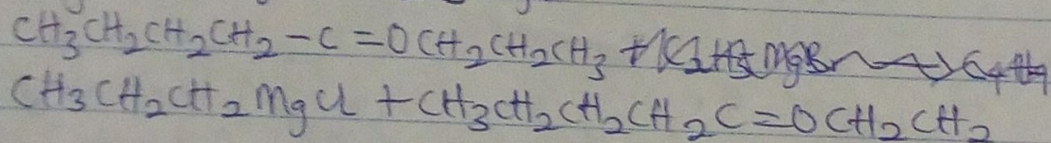 CH3CH2CH2CH2-C=OCH2CH2CH3 +
CH3CH2CH2MgCl + CH3CH2CH2CH2C=OCH2CH2